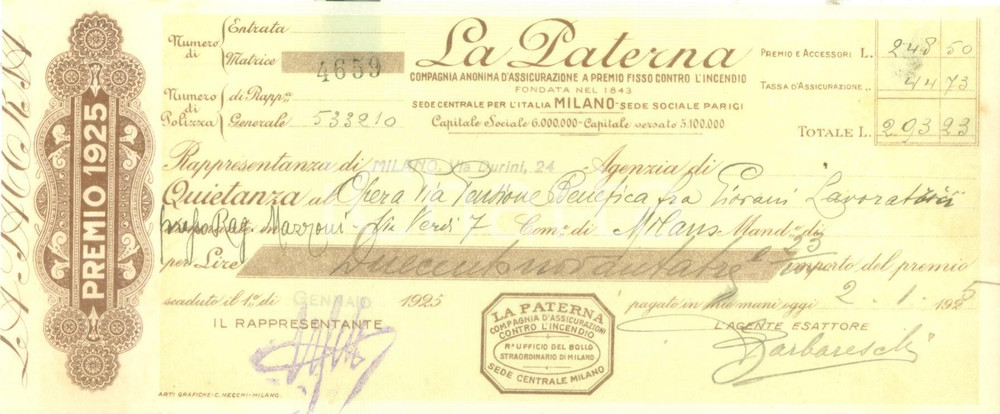 LA PATERNA
PREMIO 1925
Numero di
Entrata
Matrice 4659
Numero di Polizza
di Rapp.za
Generale 533210
La Paterna
COMPAGNIA ANONIMA D'ASSICURAZIONE A PREMIO FISSO CONTRO L'INCENDIO
FONDATA NEL 1843
SEDE CENTRALE PER L'ITALIA MILANO - SEDE SOCIALE PARIGI
Capitale Sociale 6.000.000 - Capitale versato 5.100.000
PREMIO E ACCESSORI L. 248 50
TASSA D'ASSICURAZIONE „ 44 73
TOTALE L. 293 23
Rappresentanza di MILANO, Via Durini, 24 Agenzia di
Quietanza al Opera Pia Pensione Benefica fra Giovani Lavoratrici
presso Rag. Mazzoni - Via Verdi 7 Com.e di Milano Mand.o di
per Lire Duecentonovantatre 23 importo del premio
scaduto il 1.o di GENNAIO 1925 pagato in mie mani oggi 2.1.1925
IL RAPPRESENTANTE
L'AGENTE ESATTORE
Barbareschi
LA PATERNA
COMPAGNIA D'ASSICURAZIONI
CONTRO L'INCENDIO
R.o UFFICIO DEL BOLLO
STRAORDINARIO DI MILANO
SEDE CENTRALE MILANO
ARTI GRAFICHE - C. NECCHI - MILANO.